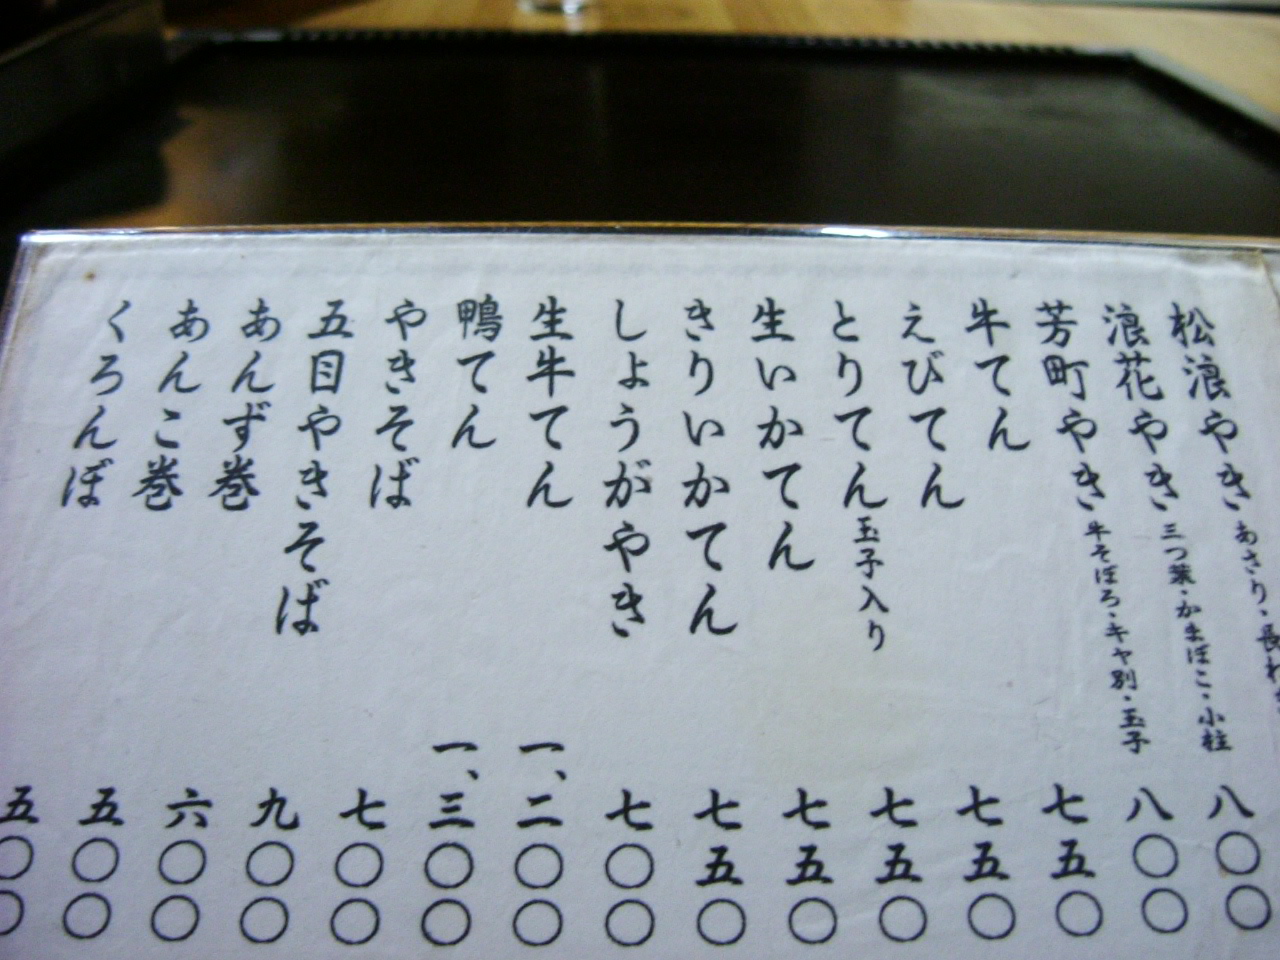 松浪やき あさり・長ね
浪花やき 三つ葉・かまぼこ・小柱 八〇〇
芳町やき 牛そぼろ・キャ別・玉子 八〇〇
牛てん 七五〇
えびてん 七五〇
とりてん 玉子入り 七五〇
生いかてん 七五〇
きりいかてん 七五〇
しょうがやき 七〇〇
生牛てん 一、二〇〇
鴨てん 一、三〇〇
やきそば 七〇〇
五目やきそば 九〇〇
あんず巻 六〇〇
あんこ巻 五〇〇
くろんぼ 五〇〇